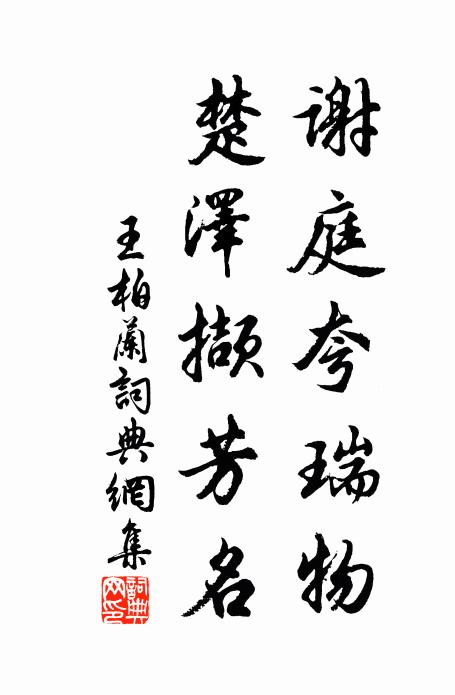 謝庭夸瑞物
楚澤擷芳名
王柏蘭詞典網集
詞典網印